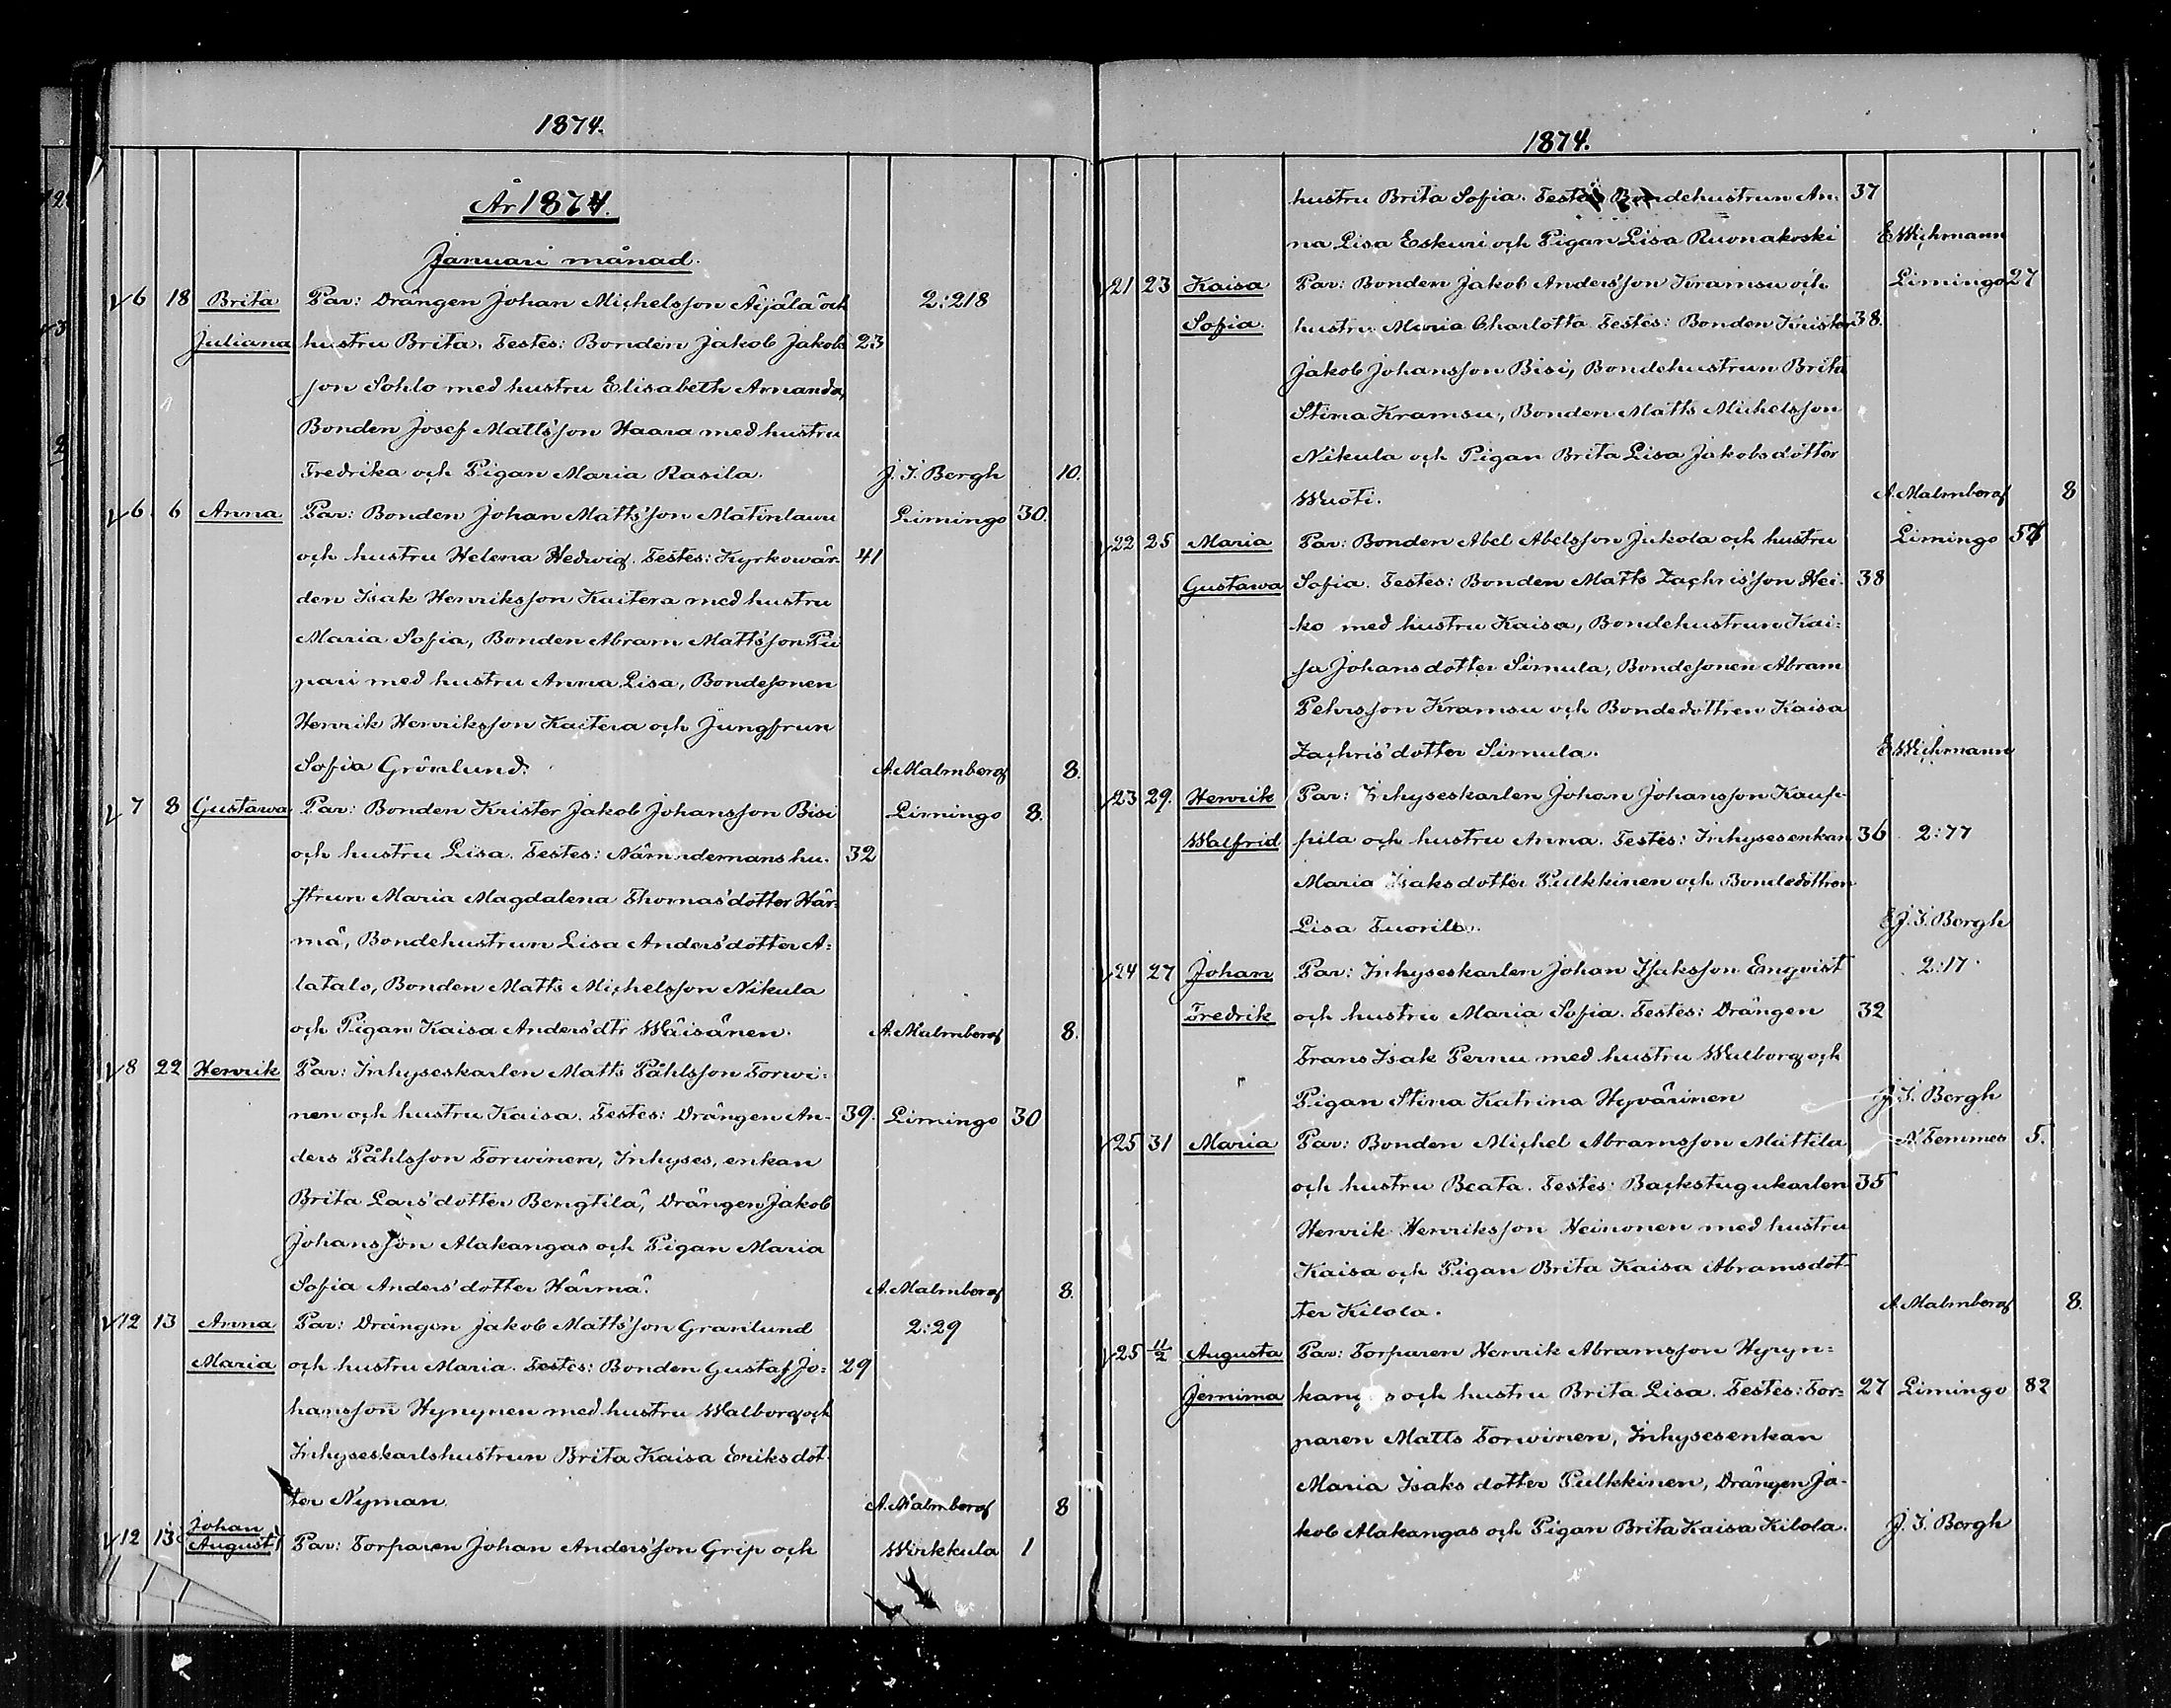 1874.
År 1874.
Januari månad.
6 18 Brita Par: Drängen Johan Michelsson Äijälä och 2:218
Juliana hustru Brita. Testes: Bonden Jakob Jakobs 23
son Sohlo med hustru Elisabeth Amanda,
Bonden Josef Matts'son Haara med hustru
Fredrika och Pigan Maria Rasila. J. I. Bergh 10.
6. 6 Anna Par: Bonden Johan Matts'son Matinlauri Limingo 30.
och hustru Helena Hedwig. Testes: Kyrkowär- 41
den Isak Henriksson Kaitera med hustru
Maria Sofia, Bonden Abram Matts'son Pii
pari med hustru Anna Lisa, Bondesonen
Henrik Henriksson Kaitera och Jungfrun
Sofia Grönlund. A. Malmberg 8.
7 8 Gustawa Par: Bonden Krister Jakob Johansson Bisi Limingo 8.
och hustru Lisa. Testes: Nämndemans hu- 32
strun Maria Magdalena Thomas'dotter Här-
mä, Bondehustrun Lisa Anders'dotter A-
latalo, Bonden Matts Michelsson Nikula
och Pigan Kaisa Anders'dtr Wäisänen. A. Malmberg 8.
8 22 Henrik Par: Inhyseskarlen Matts Påhlsson Torwi-
nen och hustru Kaisa. Testes: Drängen An- 39. Limingo 30
ders Påhlsson Torwinen, Inhyses, enkan
Brita Lars'dotter Bengtilä, Drängen Jakob
Johansson Alakangas och Pigan Maria
Sofia Anders'dotter Härmä. A. Malmberg 8.
12 13 Anna Par: Drängen Jakob Matts'son Granlund 2:29
Maria och hustru Maria. Testes: Bonden Gustaf Jo- 29
hansson Hynynen med hustru Walborg och
Inhyseskarlshustrun Brita Kaisa Eriksdot-
ter Nyman. A. Malmberg 8
Johan
12 13 August Par: Torparen Johan Anders'son Grip och Wirkkula 1
1874.
hustru Brita Sofia. Testes Bondehustrun An- 37
na Lisa Eskuri och Pigan Lisa Ruonakoski E Wichmann
21 23 Kaisa Par: Bonden Jakob Anders'son Kramsu och Limingo 27
Sofia. hustru Maria Charlotta. Testes: Bonden Krister 38.
Jakob Johansson Bisi, Bondehustrun Brita
Stina Kramsu, Bonden Matts Michelsson
Nikula och Pigan Brita Lisa Jakobsdotter
Wuoti. A. Malmberg 8
22 25 Maria Par: Bonden Abel Abelsson Jukola och hustru Limingo
Gustawa Sofia. Testes: Bonden Matts Zachris'son Hei- 38
ko med hustru Kaisa, Bondehustrun Kai-
sa Johansdotter Simula, Bondesonen Abram
Pehrsson Kramsu och Bondedottren Kaisa
Zachris'dotter Simula. E Wichmann
23 29. Henrik Par: Inhyseskarlen Johan Johansson Kaup-
Walfrid pila och hustru Anna. Testes: Inhysesenkan 36 2:77
Maria Isaksdotter Pulkkinen och Bondedottren
Lisa Tuorila. J. I. Bergh
24 27 Johan Par: Inhyseskarlen Johan Isaksson Enqvist 2:17
Fredrik och hustru Maria Sofia. Testes: Drängen 32
Frans Isak Pernu med hustru Walborg och
Pigan Stina Katrina Hyvärinen J. I. Bergh
25 31 Maria Par: Bonden Michel Abramsson Mattila N. Temmes 5.
och hustru Beata. Testes: Backstugukarlen 35
Henrik Henriksson Heinonen med hustru
Kaisa och Pigan Brita Kaisa Abramsdot-
ter Kilola. A. Malmberg 8.
25 11/2 Augusta Par: Torparen Henrik Abramsson Hyryn-
Jemima kangas och hustru Brita Lisa. Testes: Tor- 27 Limingo 82
paren Matts Torwinen, Inhysesenkan
Maria Isaks dotter Pulkkinen, Drängen Ja-
kob Alakangas och Pigan Brita Kaisa Kilola. J. I. Bergh